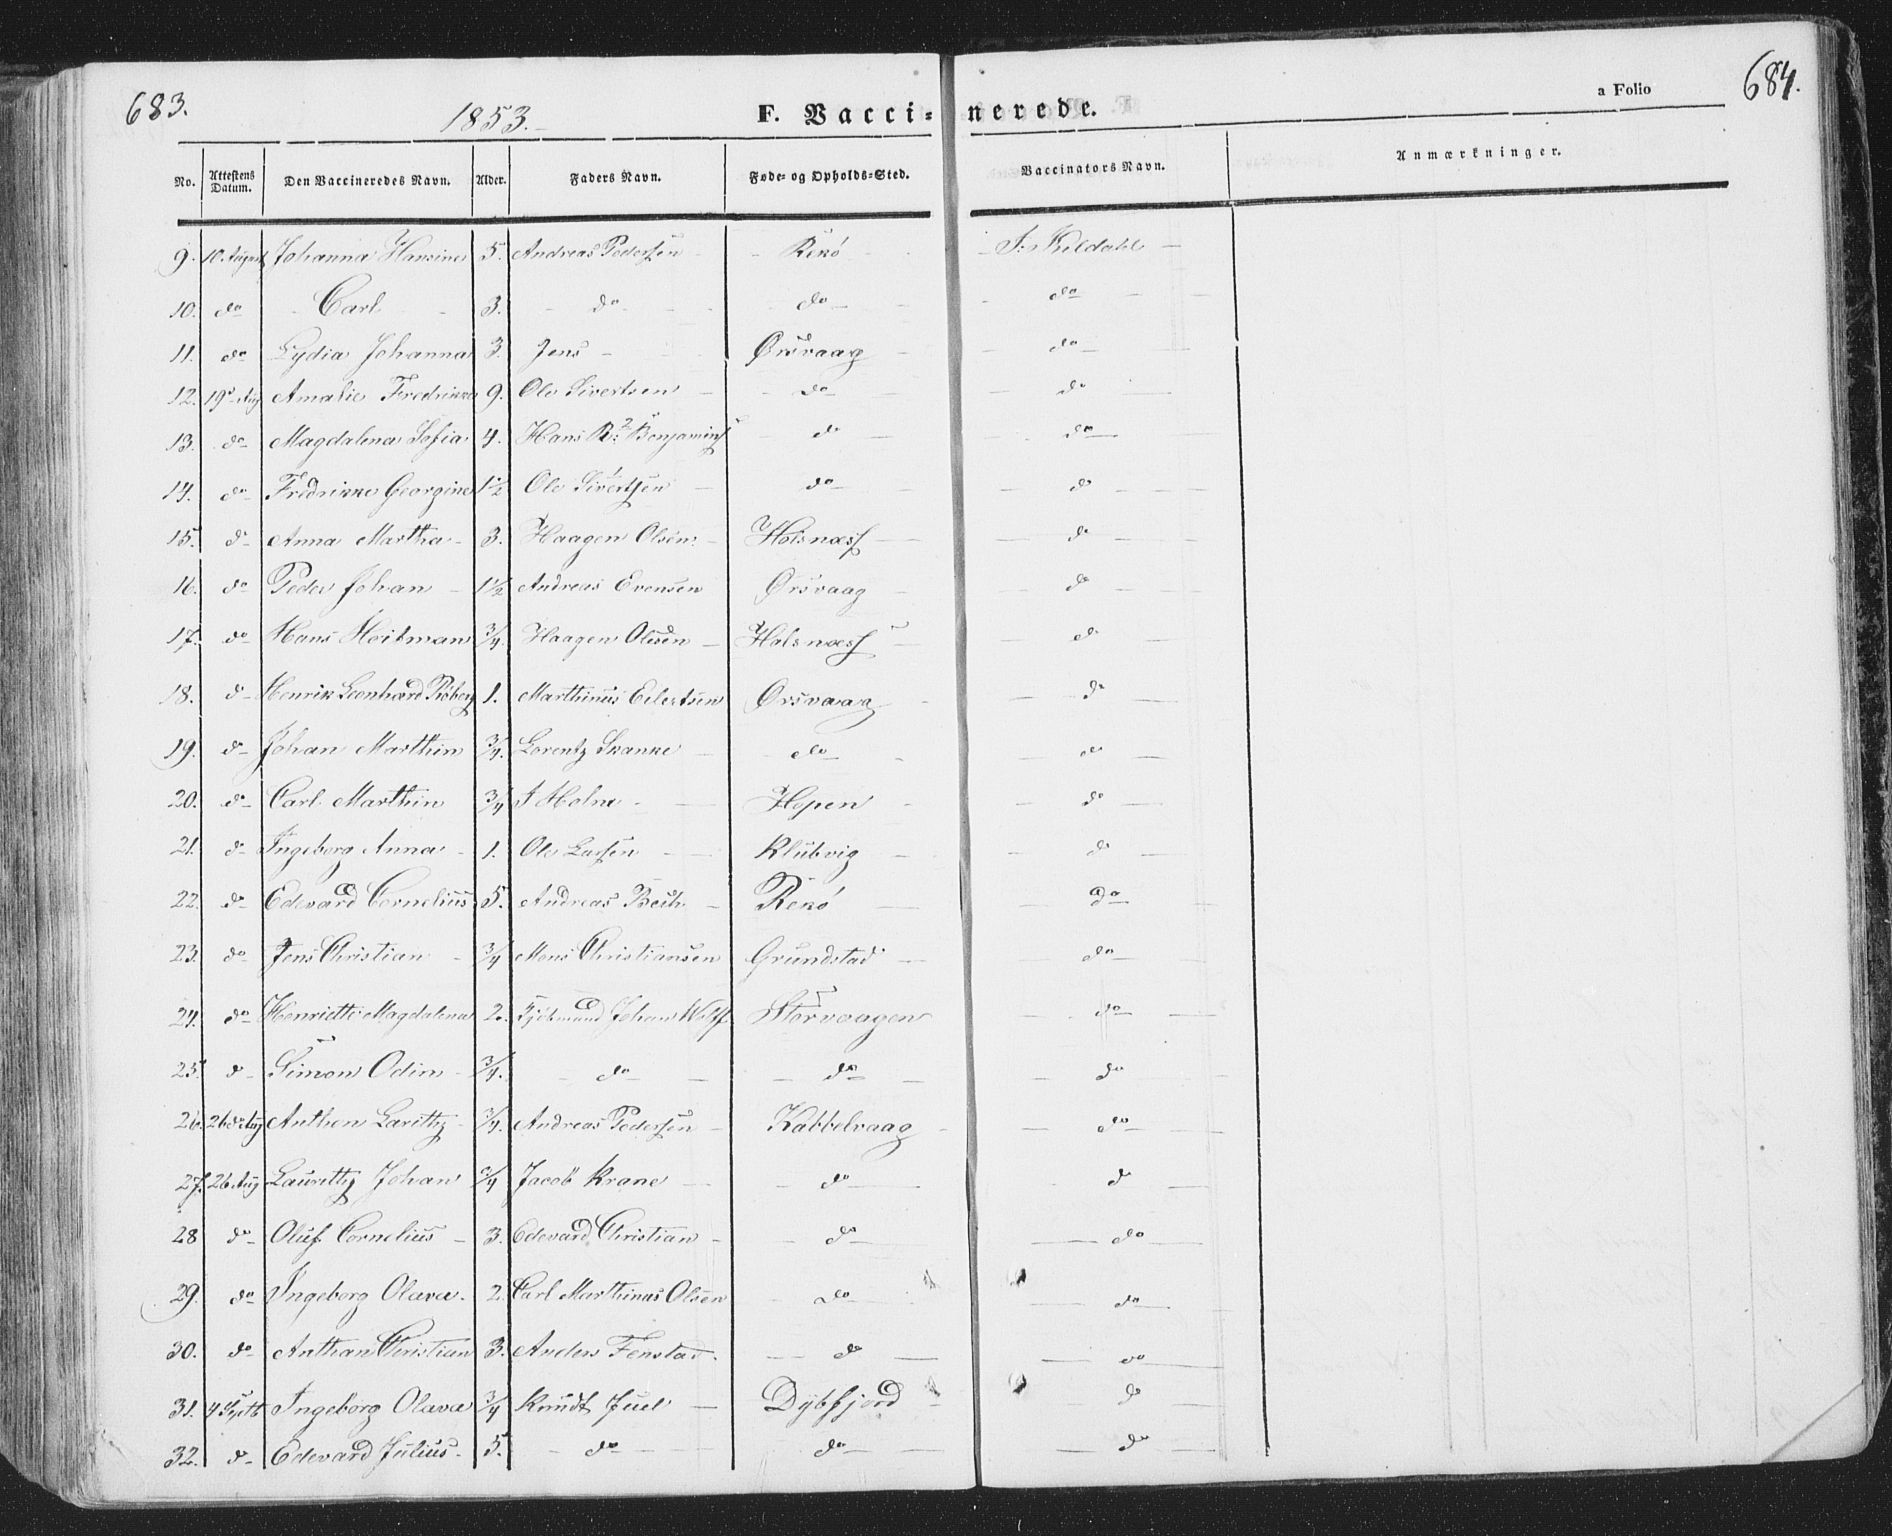 683.
1853.
F. Vaccinerede.
a Folio
684.
No. Attestens Datum. Den Vaccineredes Navn. Alder. Faders Navn. Føde- og Opholds-Sted. Vaccinators Navn. Anmærkninger.
9. 10. August Johanna Hansine 5. Andreas Pedersen Rekø J. Kildahl
10. do Carl 3. do do do
11. do Lydia Johanna 3. Jens Ørsvaag do
12. 19d Aug Amalie Fredrikke 9. Ole Sivertsen do do
13. do Magdalena Sofia 4. Hans R: Benjamins do do
14. do Fredrikke Georgine 1½ Ole Sivertsen do do
15. do Anna Martha 3. Haagen Olsen Holsnæss do
16. do Peder Johan 1½ Andreas Evensen Ørsvaag do
17. do Hans Heitman 3/4. Haagen Olsen Holsnæss do
18. do Henrik Leonhard 1. Marthinus Eilertsen Ørsvaag do
19. do Johan Marthin 3/4. Lorentz Skanke do do
20. do Carl Marthin 3/4 J Holm Hopen do
21. do Ingeborg Anna 1. Ole Larsen Klubvig do
22. do Edevard Cornelius 5. Andreas Beck Rekø do
23. do Jens Christian 3/4 Mons Christiansen Grundstad do
24. do Henriette Magdalena 2. Johan Wolff Storvaagen do
25. do Simon Odin 3/4. do do do
26. 26d Aug Anthon Larithz 3/4. Andreas Pedersen Kabbelvaag do
27. 26 Aug Laurithz Johan 3/4 Jacob Krane do do
28 do Oluf Cornelius 3. Edevard Christian do do
29. do Ingeborg Olava 2. Carl Marthinus Olsen do do
30. do Anthan Christian 3. Anders Fenstad do do
31. 4 Septb Ingeborg Olava 3/4 Knudt Juel Dybfjord do
32. do Edevard Julius 5. do do do